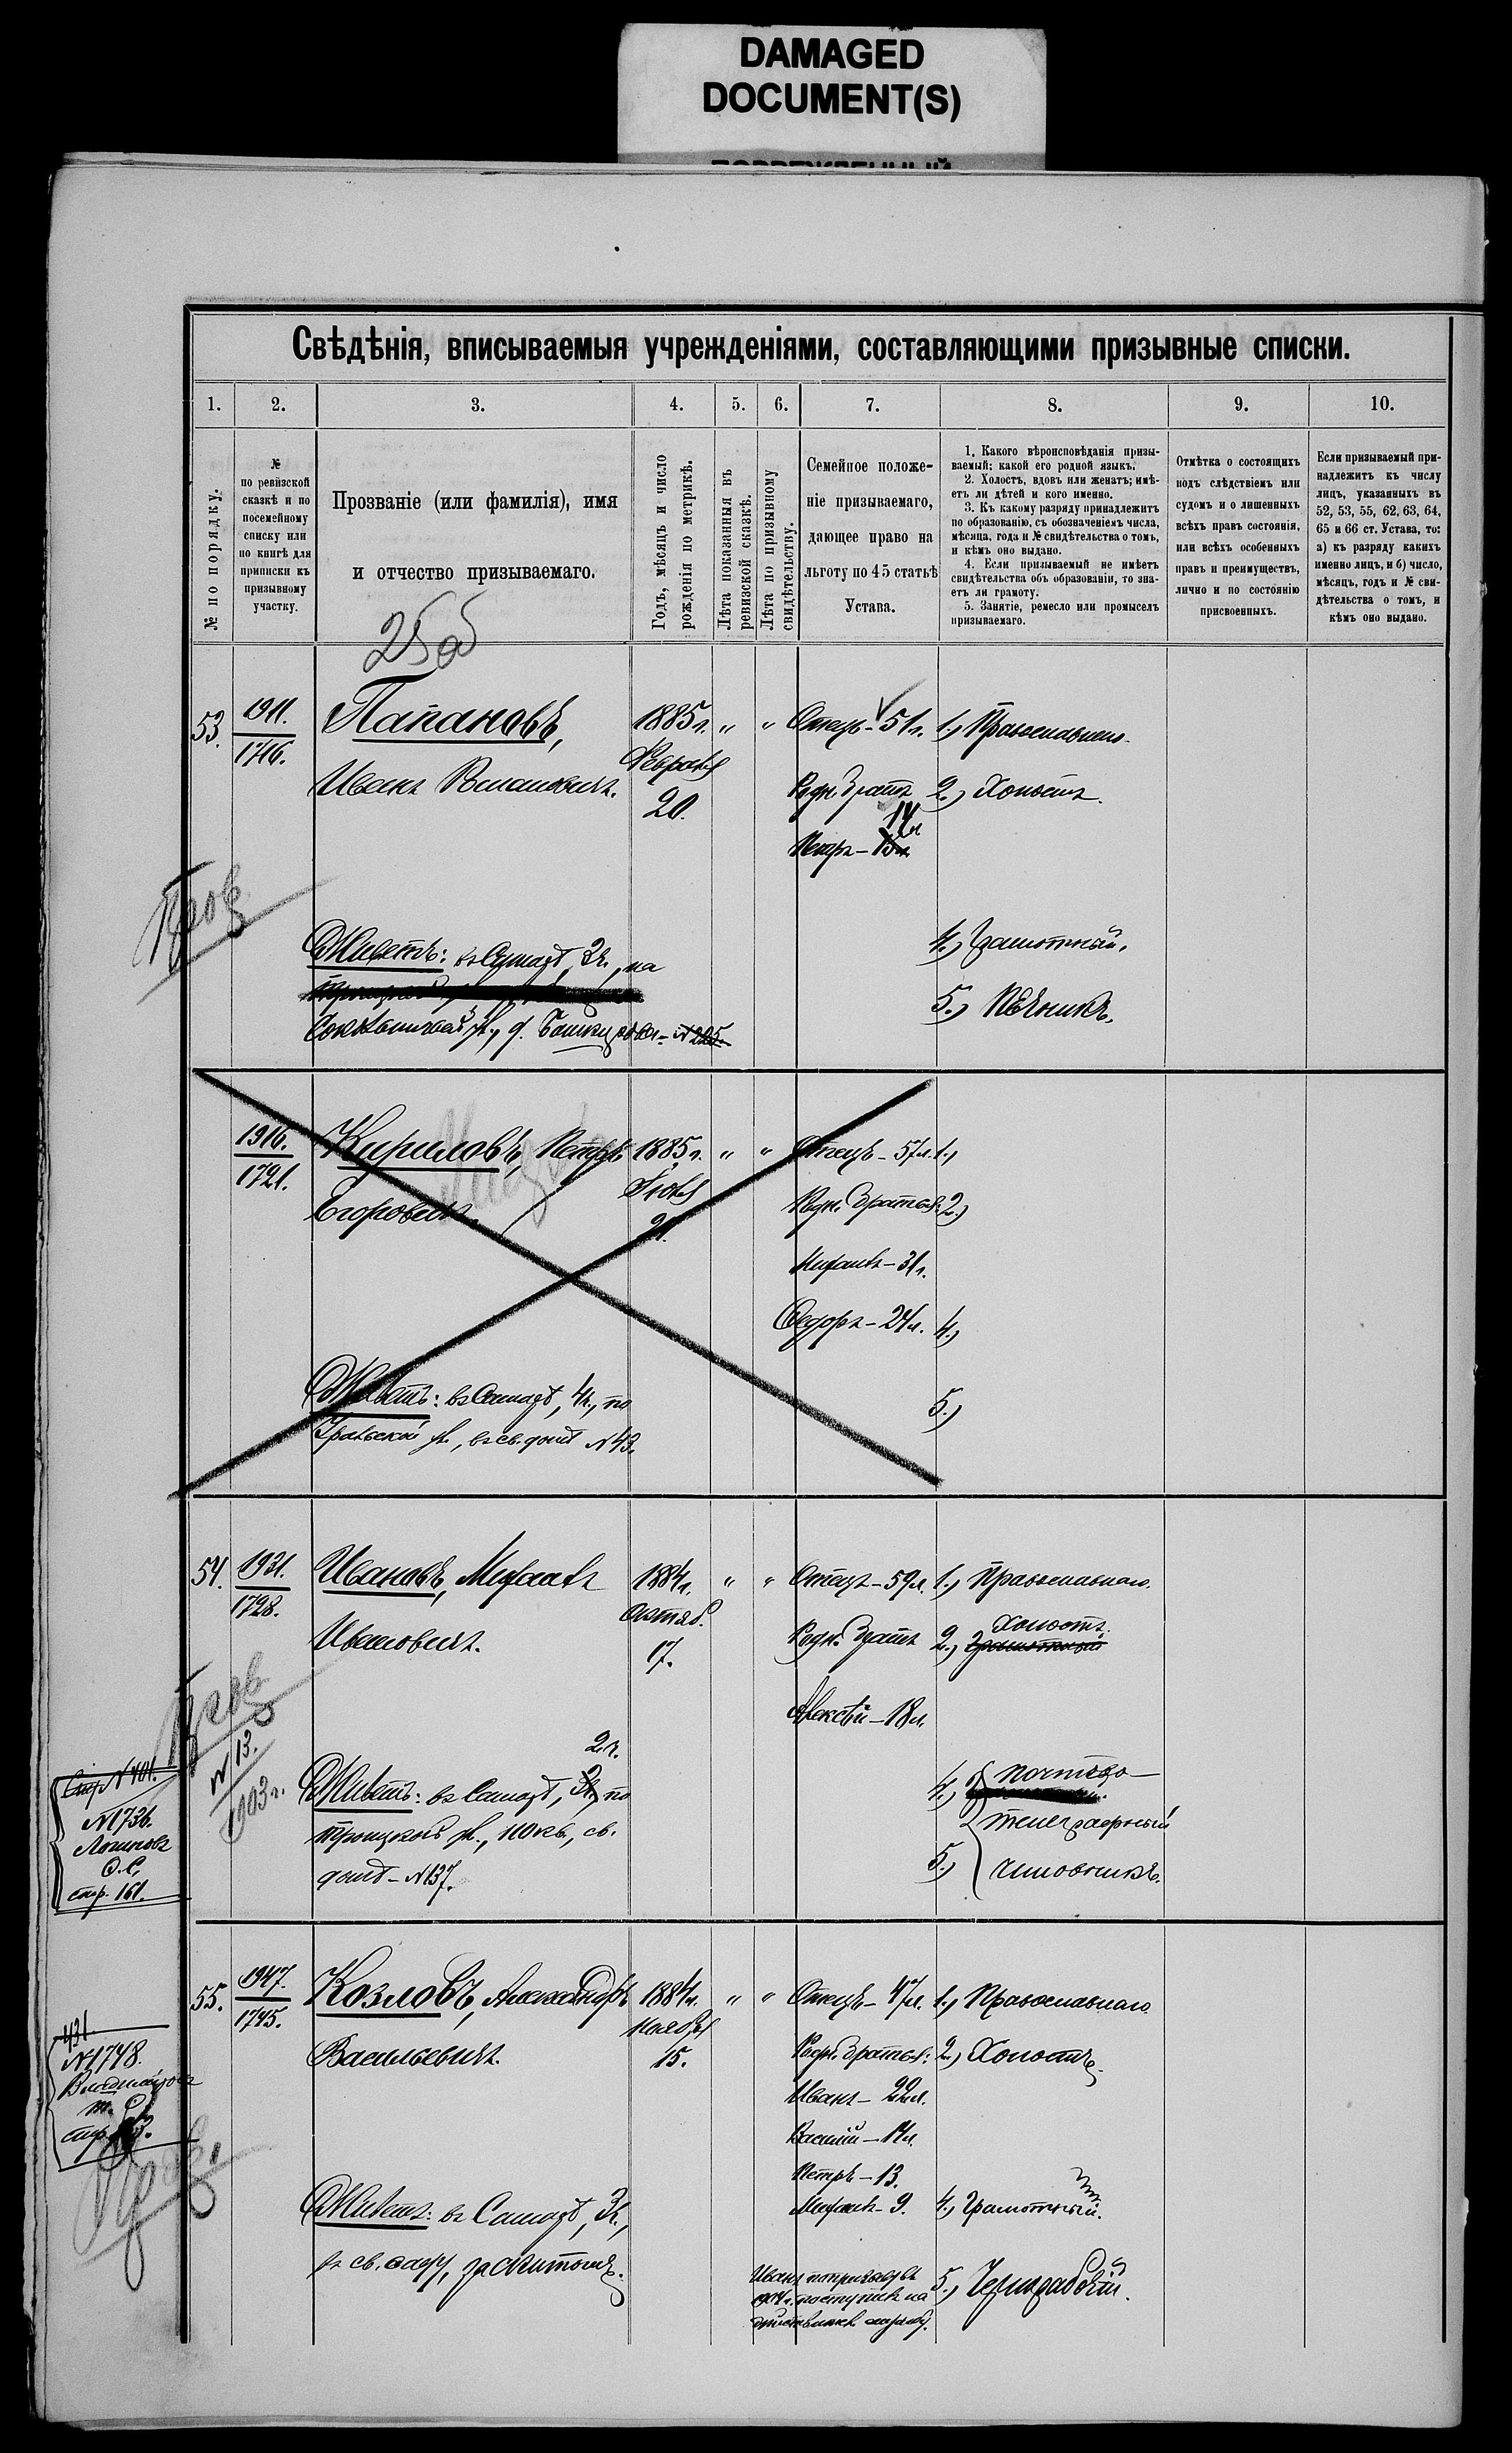 DAMAGED
DOCUMENT(S)
Свѣдѣнія, вписываемыя учрежденіями, составляющими призывные списки.
1. 2. 3. 4. 5. 6. 7. 8. 9. 10.
№ по порядку.
№
по ревизской
сказкѣ и по
посемейному
списку или
по книгѣ для
приписки къ
призывному
участку.
Прозваніе (или фамилія), имя
и отчество призываемаго.
Годъ, мѣсяцъ и число
рожденія по метрикѣ.
Лѣта показанныя въ
ревизской сказкѣ.
Лѣта по призывному
свидѣтельству.
Семейное положе-
ніе призываемаго,
дающее право на
льготу по 45 статьѣ
Устава.
1. Какого вѣроисповѣданія призы-
ваемый; какой его родной языкъ.
2. Холостъ, вдовъ или женатъ; имѣ-
етъ ли дѣтей и кого именно.
3. Къ какому разряду принадлежитъ
по образованію, съ обозначеніемъ числа,
мѣсяца, года и № свидѣтельства о томъ,
и кѣмъ оно выдано.
4. Если призываемый не имѣетъ
свидѣтельства объ образованіи, то зна-
етъ ли грамоту.
5. Занятіе, ремесло или промыселъ
призываемаго.
Отмѣтка о состоящихъ
подъ слѣдствіемъ или
судомъ и о лишенныхъ
всѣхъ правъ состоянія,
или всѣхъ особенныхъ
правъ и преимуществъ,
лично и по состоянію
присвоенныхъ.
Если призываемый при-
надлежитъ къ числу
лицъ, указанныхъ въ
52, 53, 55, 62, 63, 64,
65 и 66 ст. Устава, то:
а) къ разряду какихъ
именно лицъ, и б) число,
мѣсяцъ, годъ и № сви-
дѣтельства о томъ, и
кѣмъ оно выдано.
53.
1911.
1716.
Папановъ,
Иванъ
1885 г.
Февраля
20.
" "
Отецъ - 51 г.
Родн. братъ
14 л
Петръ -
1.) Православнаго.
2.) Холостъ.
4.) Грамотный.
5.) Печникъ.
Живетъ: въ Самарѣ, 3 ч., на
ул., д. Башкирова - № 225.
1916.
1721.
Кириловъ, Петръ
Егоровичъ.
1885 г.
Іюля
21.
" "
Отецъ - 57 л.
Родн. братья:
Михаилъ - 31 г.
Федоръ - 24 л.
1.)
2.)
4.)
5.)
Живетъ: въ Самарѣ, 4 ч., по
Уральской ул., въ св. домѣ № 43.
54.
1931.
1728.
Ивановъ, Михаилъ
Ивановичъ.
1884 г.
Октяб.
17.
" "
Отецъ - 59 л.
Родн. братъ
Алексѣй - 18 л.
1.) Православнаго.
Холостъ.
2.) Грамотный
4.) почтово-
телеграфный
5.) чиновникъ.
№ 13.
1903 г.
2 ч.
Живетъ: въ Самарѣ, 3 ч., по
Троицкой ул., 110 кв., св.
домѣ - № 137.
№ 1736.
Логиновъ
стр. 161.
55.
1947.
1745.
Козловъ, Александръ
Васильевичъ.
1884 г.
Ноября
15.
" "
Отецъ - 47 л.
Родн. братья:
Иванъ - 22 л.
Василій - 14 л.
Петръ - 13.
Михаилъ - 9.
1.) Православнаго
2.) Холостъ.
4.) Грамотный.
5.) Чернорабочій.
Живетъ: въ Самарѣ, 3 ч.,
въ св. саду,
431.
№ 1748.